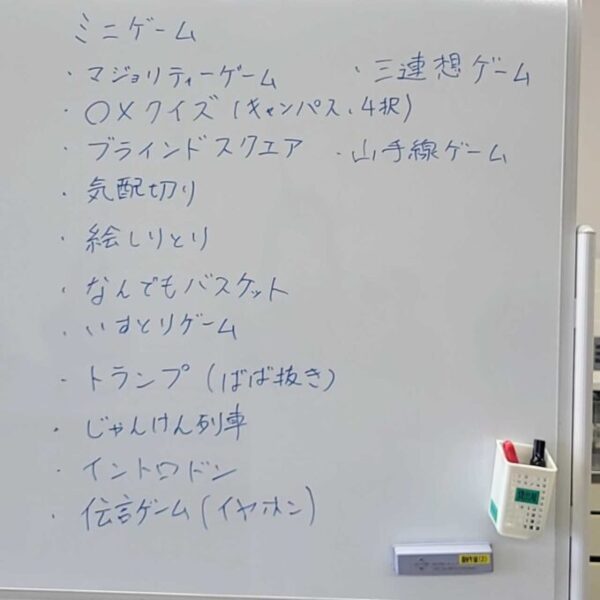 ミニゲーム
・マジョリティーゲーム
・三連想ゲーム
・〇×クイズ(キャンパス、4択)
・ブラインドスクエア
・山手線ゲーム
・気配切り
・絵しりとり
・なんでもバスケット
・いすとりゲーム
・トランプ(ばば抜き)
・じゃんけん列車
・イントロドン
・伝言ゲーム(イヤホン)